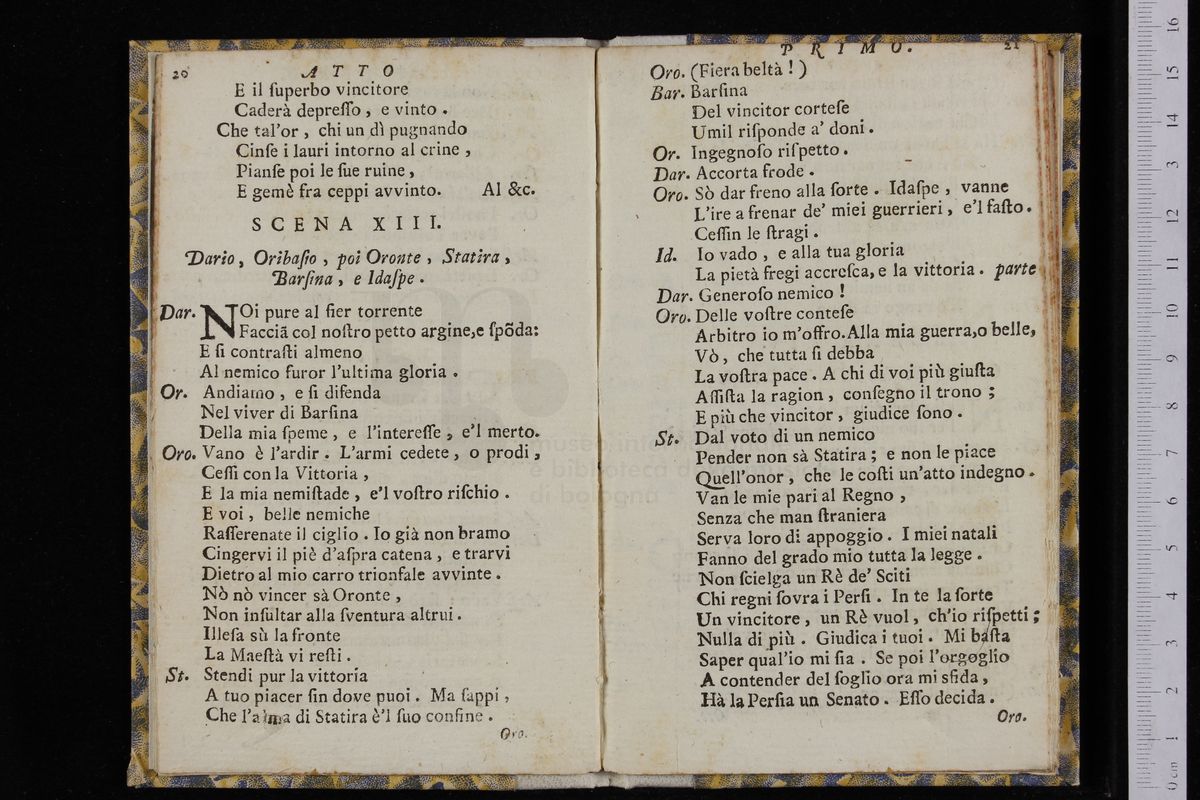 20
ATTO
E il ſuperbo vincitore
Caderà depreſſo , e vinto .
Che tal'or , chi un dì pugnando
Cinſe i lauri intorno al crine ,
Pianſe poi le ſue ruine ,
E gemè fra ceppi avvinto. Al &c.
SCENA XIII.
Dario, Oribaſio , poi Oronte , Statira ,
Barſina , e Idaſpe .
Dar. NOi pure al fier torrente
Facciã col noſtro petto argine,e ſpõda:
E ſi contraſti almeno
Al nemico furor l'ultima gloria .
Or. Andiamo , e ſi difenda
Nel viver di Barſina
Della mia ſpeme , e l'intereſſe , e'l merto.
Oro. Vano è l'ardir . L'armi cedete , o prodi ,
Ceſſi con la Vittoria ,
E la mia nemiſtade , e'l voſtro riſchio .
E voi , belle nemiche
Raſſerenate il ciglio . Io già non bramo
Cingervi il piè d'aſpra catena , e trarvi
Dietro al mio carro trionfale avvinte .
Nò nò vincer sà Oronte ,
Non inſultar alla ſventura altrui .
Illeſa sù la fronte
La Maeſtà vi reſti .
St. Stendi pur la vittoria
A tuo piacer ſin dove puoi . Ma ſappi ,
Che l'alma di Statira è'l ſuo confine .
Oro.
PRIMO.
21
Oro. (Fiera beltà ! )
Bar. Barſina
Del vincitor corteſe
Umil riſponde a' doni .
Or. Ingegnoſo riſpetto .
Dar. Accorta frode .
Oro. Sò dar freno alla ſorte . Idaſpe , vanne
L'ire a frenar de' miei guerrieri , e'l faſto .
Ceſſin le ſtragi .
Id. Io vado , e alla tua gloria
La pietà fregi accreſca, e la vittoria . parte
Dar. Generoſo nemico !
Oro. Delle voſtre conteſe
Arbitro io m'offro. Alla mia guerra,o belle,
Vò , che tutta ſi debba
La voſtra pace . A chi di voi più giuſta
Aſſiſta la ragion , conſegno il trono ;
E più che vincitor , giudice ſono .
St. Dal voto di un nemico
Pender non sà Statira ; e non le piace
Quell'onor , che le coſti un'atto indegno .
Van le mie pari al Regno ,
Senza che man ſtraniera
Serva loro di appoggio . I miei natali
Fanno del grado mio tutta la legge .
Non ſcielga un Rè de' Sciti
Chi regni ſovra i Perſi . In te la ſorte
Un vincitore , un Rè vuol , ch'io riſpetti ;
Nulla di più . Giudica i tuoi . Mi baſta
Saper qual'io mi ſia . Se poi l'orgoglio
A contender del ſoglio ora mi sfida ,
Hà la Perſia un Senato . Eſſo decida .
Oro.
0 cm 1 2 3 4 5 6 7 8 9 10 11 12 13 14 15 16